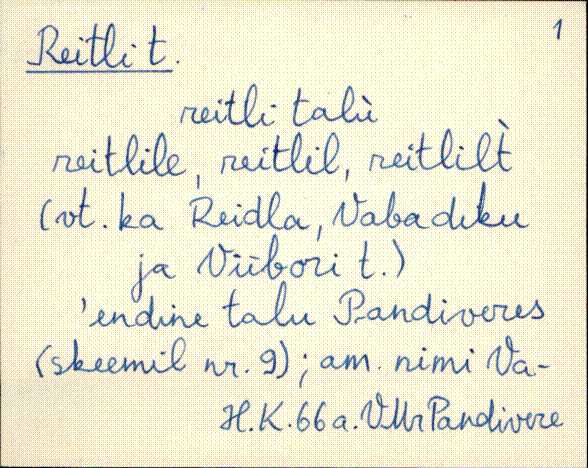 1
Reitli t.
reitli talù
reitlile, reitlil, reitlilt̀
(vt. ka Reidla, Vabadiku
ja Viibori t.)
'endine talu Pandiveres
(skeemil nr. 9); am. nimi Va-
H.K. 66 a. VMr Pandivere